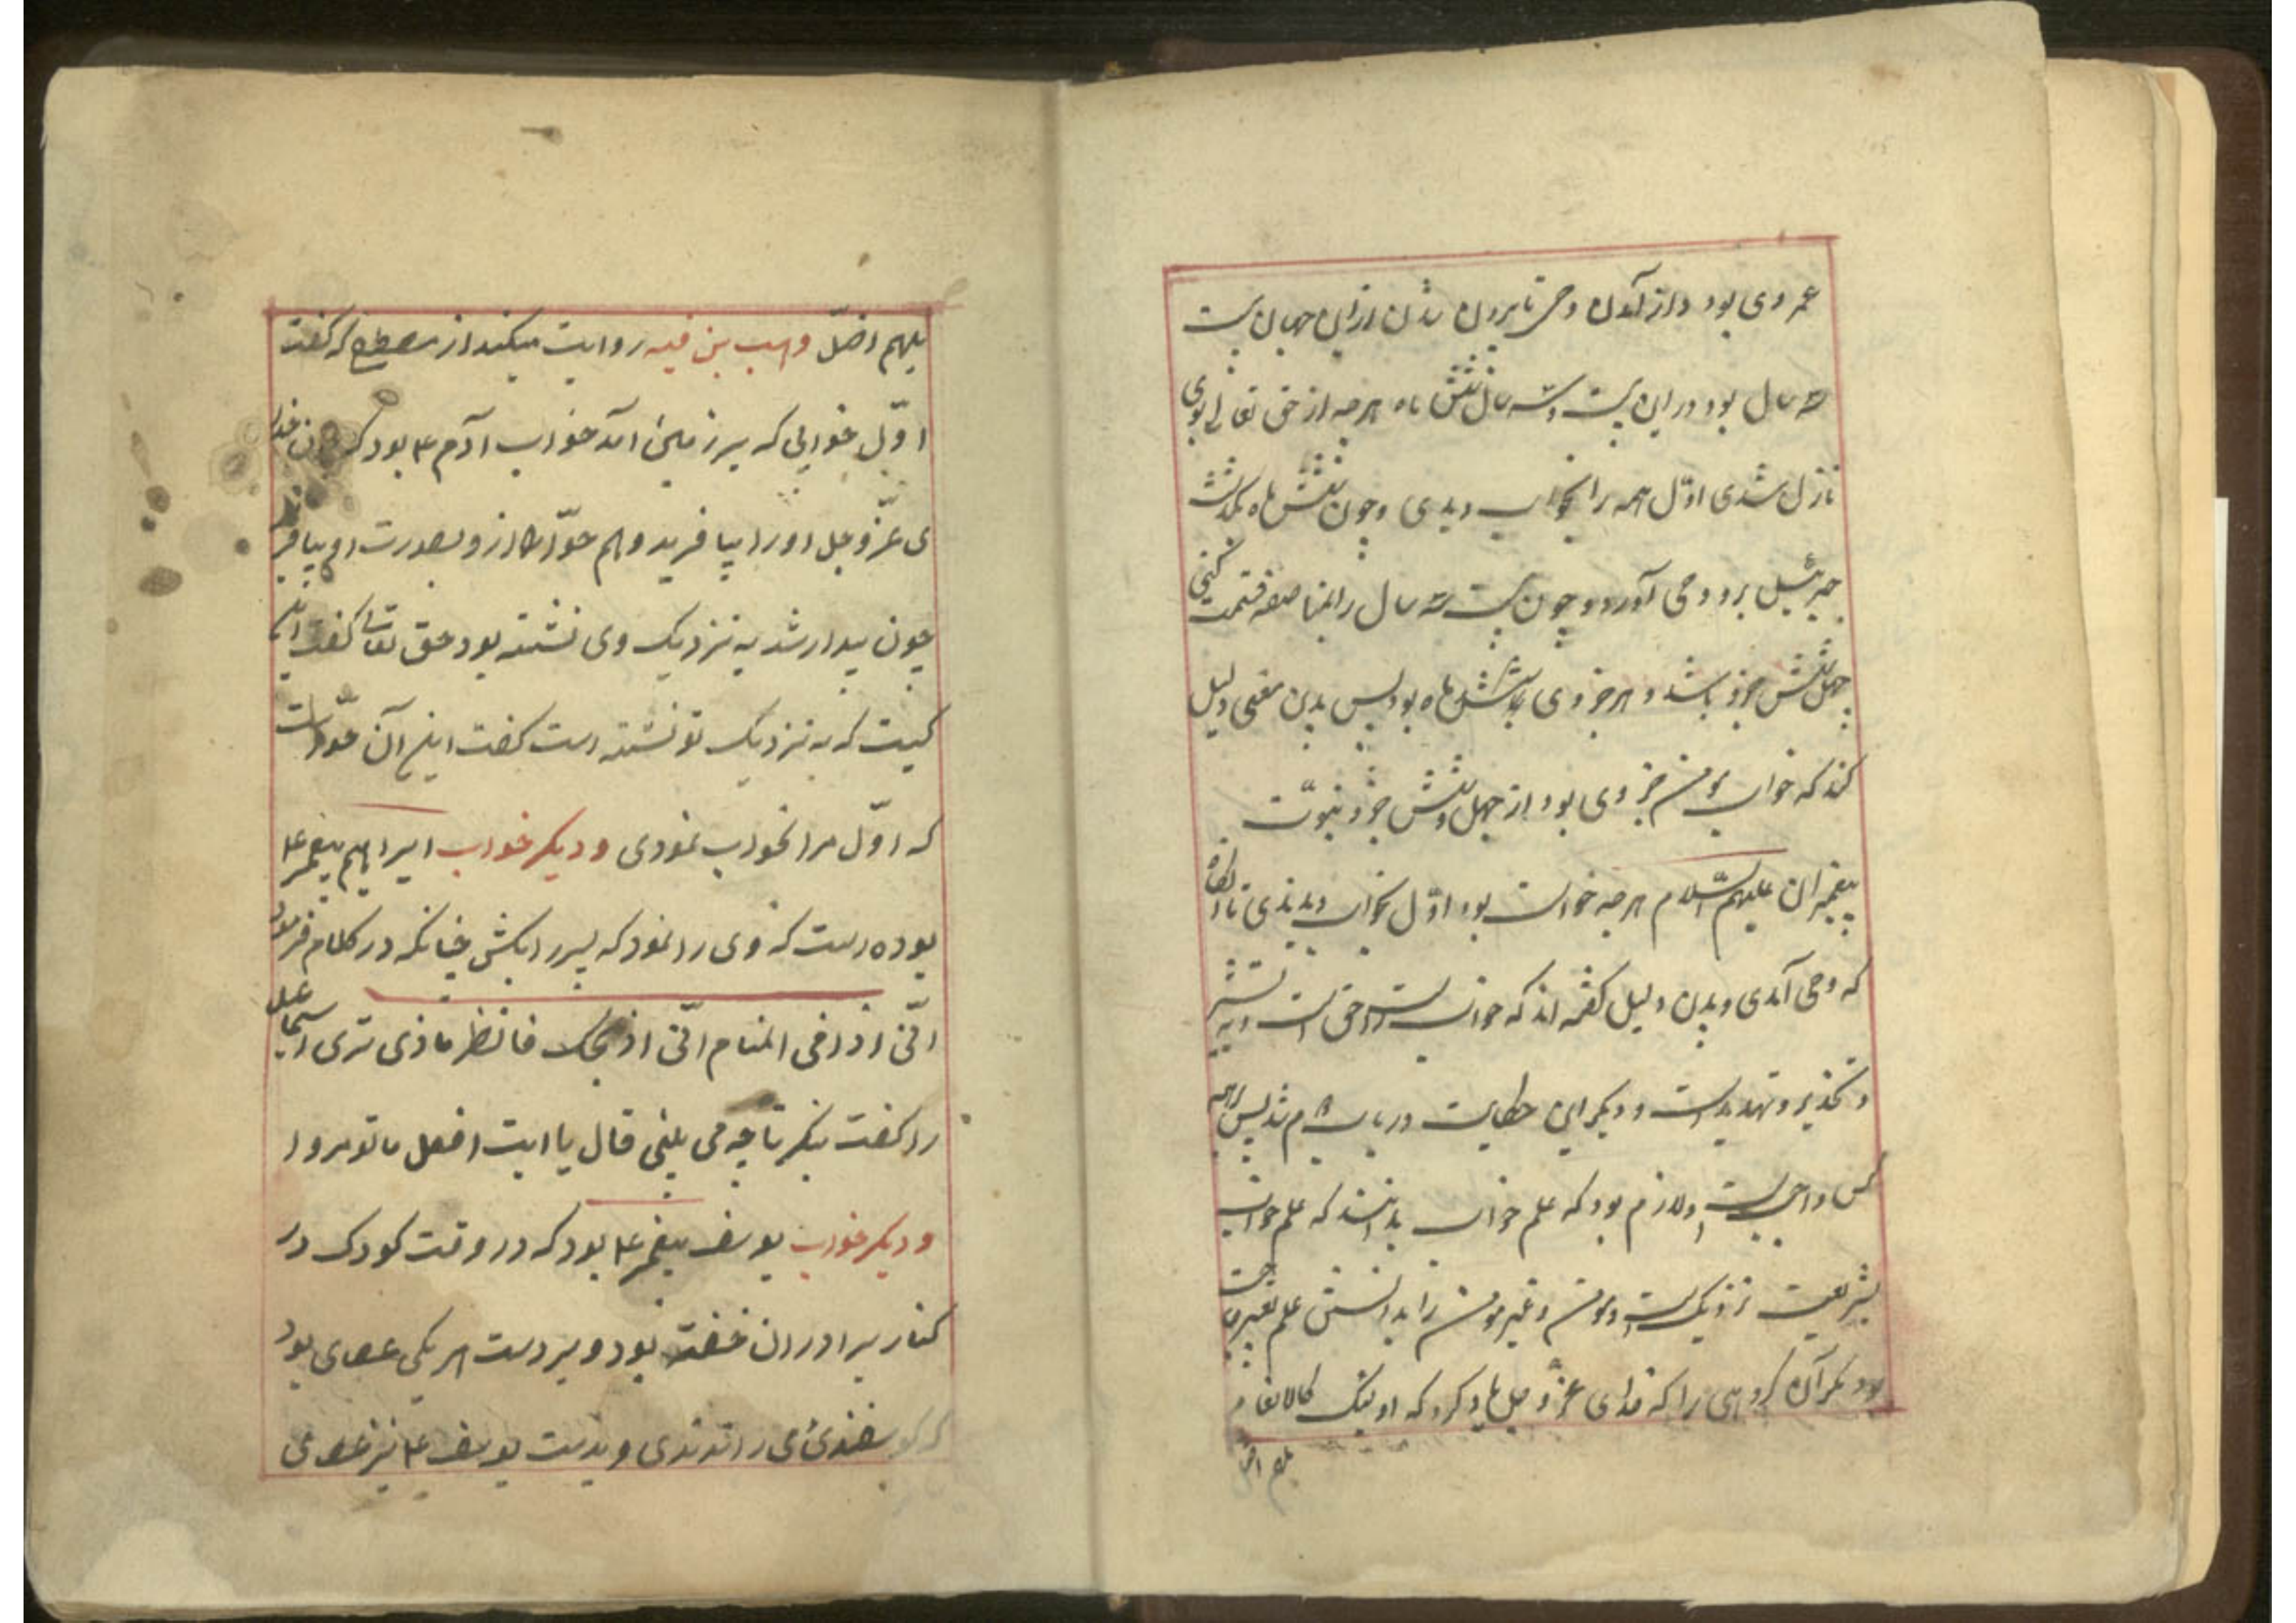 عمر وی بود و از آمدن وحی تا بیرون شدن از این جهان بیست
و سه سال بود در این بیست و سه سال شش ماه هر چه از حق تعالی بوی
نازل شدی اوّل همه را بخواب دیدی و چون شش ماه بگذشت
جبرئیل برو وحی آورد و چون بیست و سه سال را بمناصفه قسمت کنی
چهل و شش جزو باشد و هر جزوی شش ماه بود پس بدین معنی دلیل
کند که خواب مومن جزوی بود از چهل و شش جزو نبوّت
پیغمبران علیهم السّلام هر چه خواست بود اوّل بخواب دیدندی تا آنگاه
که وحی آمدی و بدین دلیل گفته اند که خواب است و حق است و به تبشیر
و تحذیر و تهدید است و دیگر این حطابست در باب پس همه
کس واجبست و لازم بود که علم خواب بدانند که علم خواب
بشریعت نزدیکست و مومن و غیر مومن را بدانستن علم تعبیر حاجت
بود مگر آن گروهی را که خدای عزّ و جل یاد کرد که اولئک کالانعام
بلهم اضل
بلهم اضلّ وهب بن فیه روایت میکند از مصطفی که گفت
اوّل خوابی که بر زمین آمد خواب آدم ع بود که چون خدا
ی عزّ و جل او را بیافرید و هم حوّا را از و بصورت او بیافر
چون بیدار شد به نزدیک وی نشسته بود حق تعالی گفت این
کیست که به نزدیک تو نشسته است گفت این آن حوّاست
که اوّل مرا بخواب نمودی و دیکر خواب ابراهیم پیغمبر ع
بوده است که وی را نمود که پسر را بکش چنانکه در کلام فرمود
انّی اذا فی المنام انّی اذبحک فانظر ماذی تری اسماعیل
را گفت بنکر تا چه می بینی قال یا ابت افعل ما تومروا
و دیکر خواب یوسف پیغمبر ع بود که در وقت کودک در
کنار برادران خفته بود و بر دست هر یکی عصای بود
که گوسفندی می راندندی و بدست یوسف ع نیز عصای